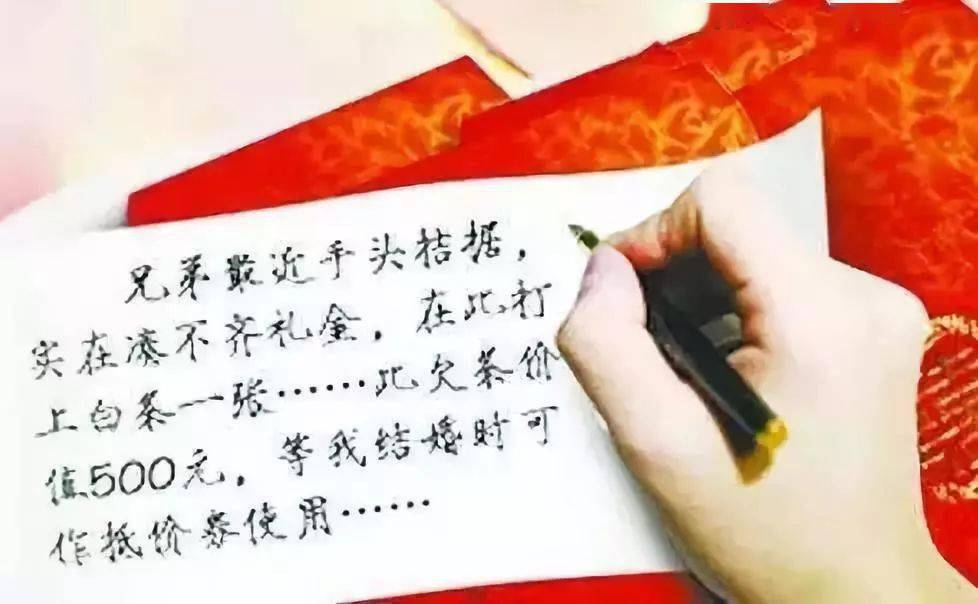 兄弟最近手头桔据，
实在凑不齐礼金，在此打
上白条一张……此欠条价
值500元，等我结婚时可
作抵价券使用……